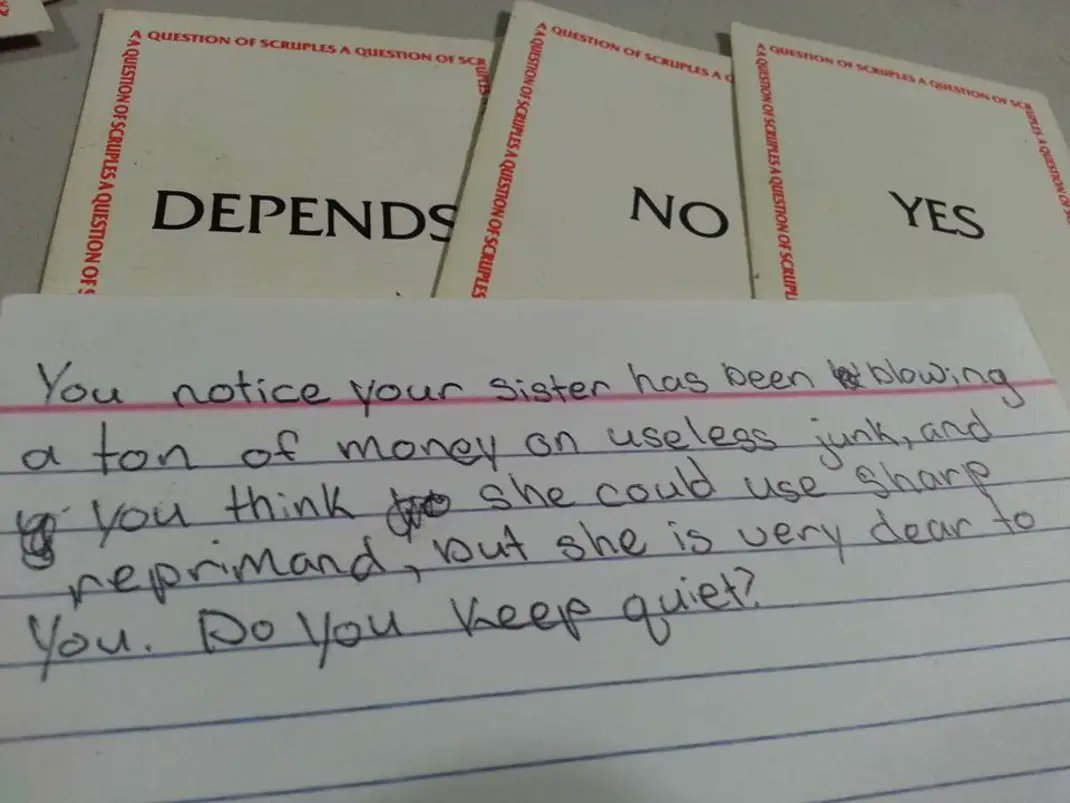 A QUESTION OF SCRUPLES A QUESTION OF SCR
A QUESTION OF SCRUPLES A QUESTION OF S
DEPENDS
A QUESTION OF SCRUPLES A Q
A QUESTION OF SCRUPLES A QUESTION OF SCRUPLES
NO
A QUESTION OF SCRUPLES A QUESTION OF SCR
A QUESTION OF SCRUPLES A QUESTION OF SCRUPL
A QUESTION OF SC
YES
You notice your sister has been blowing
a ton of money on useless junk, and
you think she could use sharp
reprimand, but she is very dear to
you. Do you keep quiet?